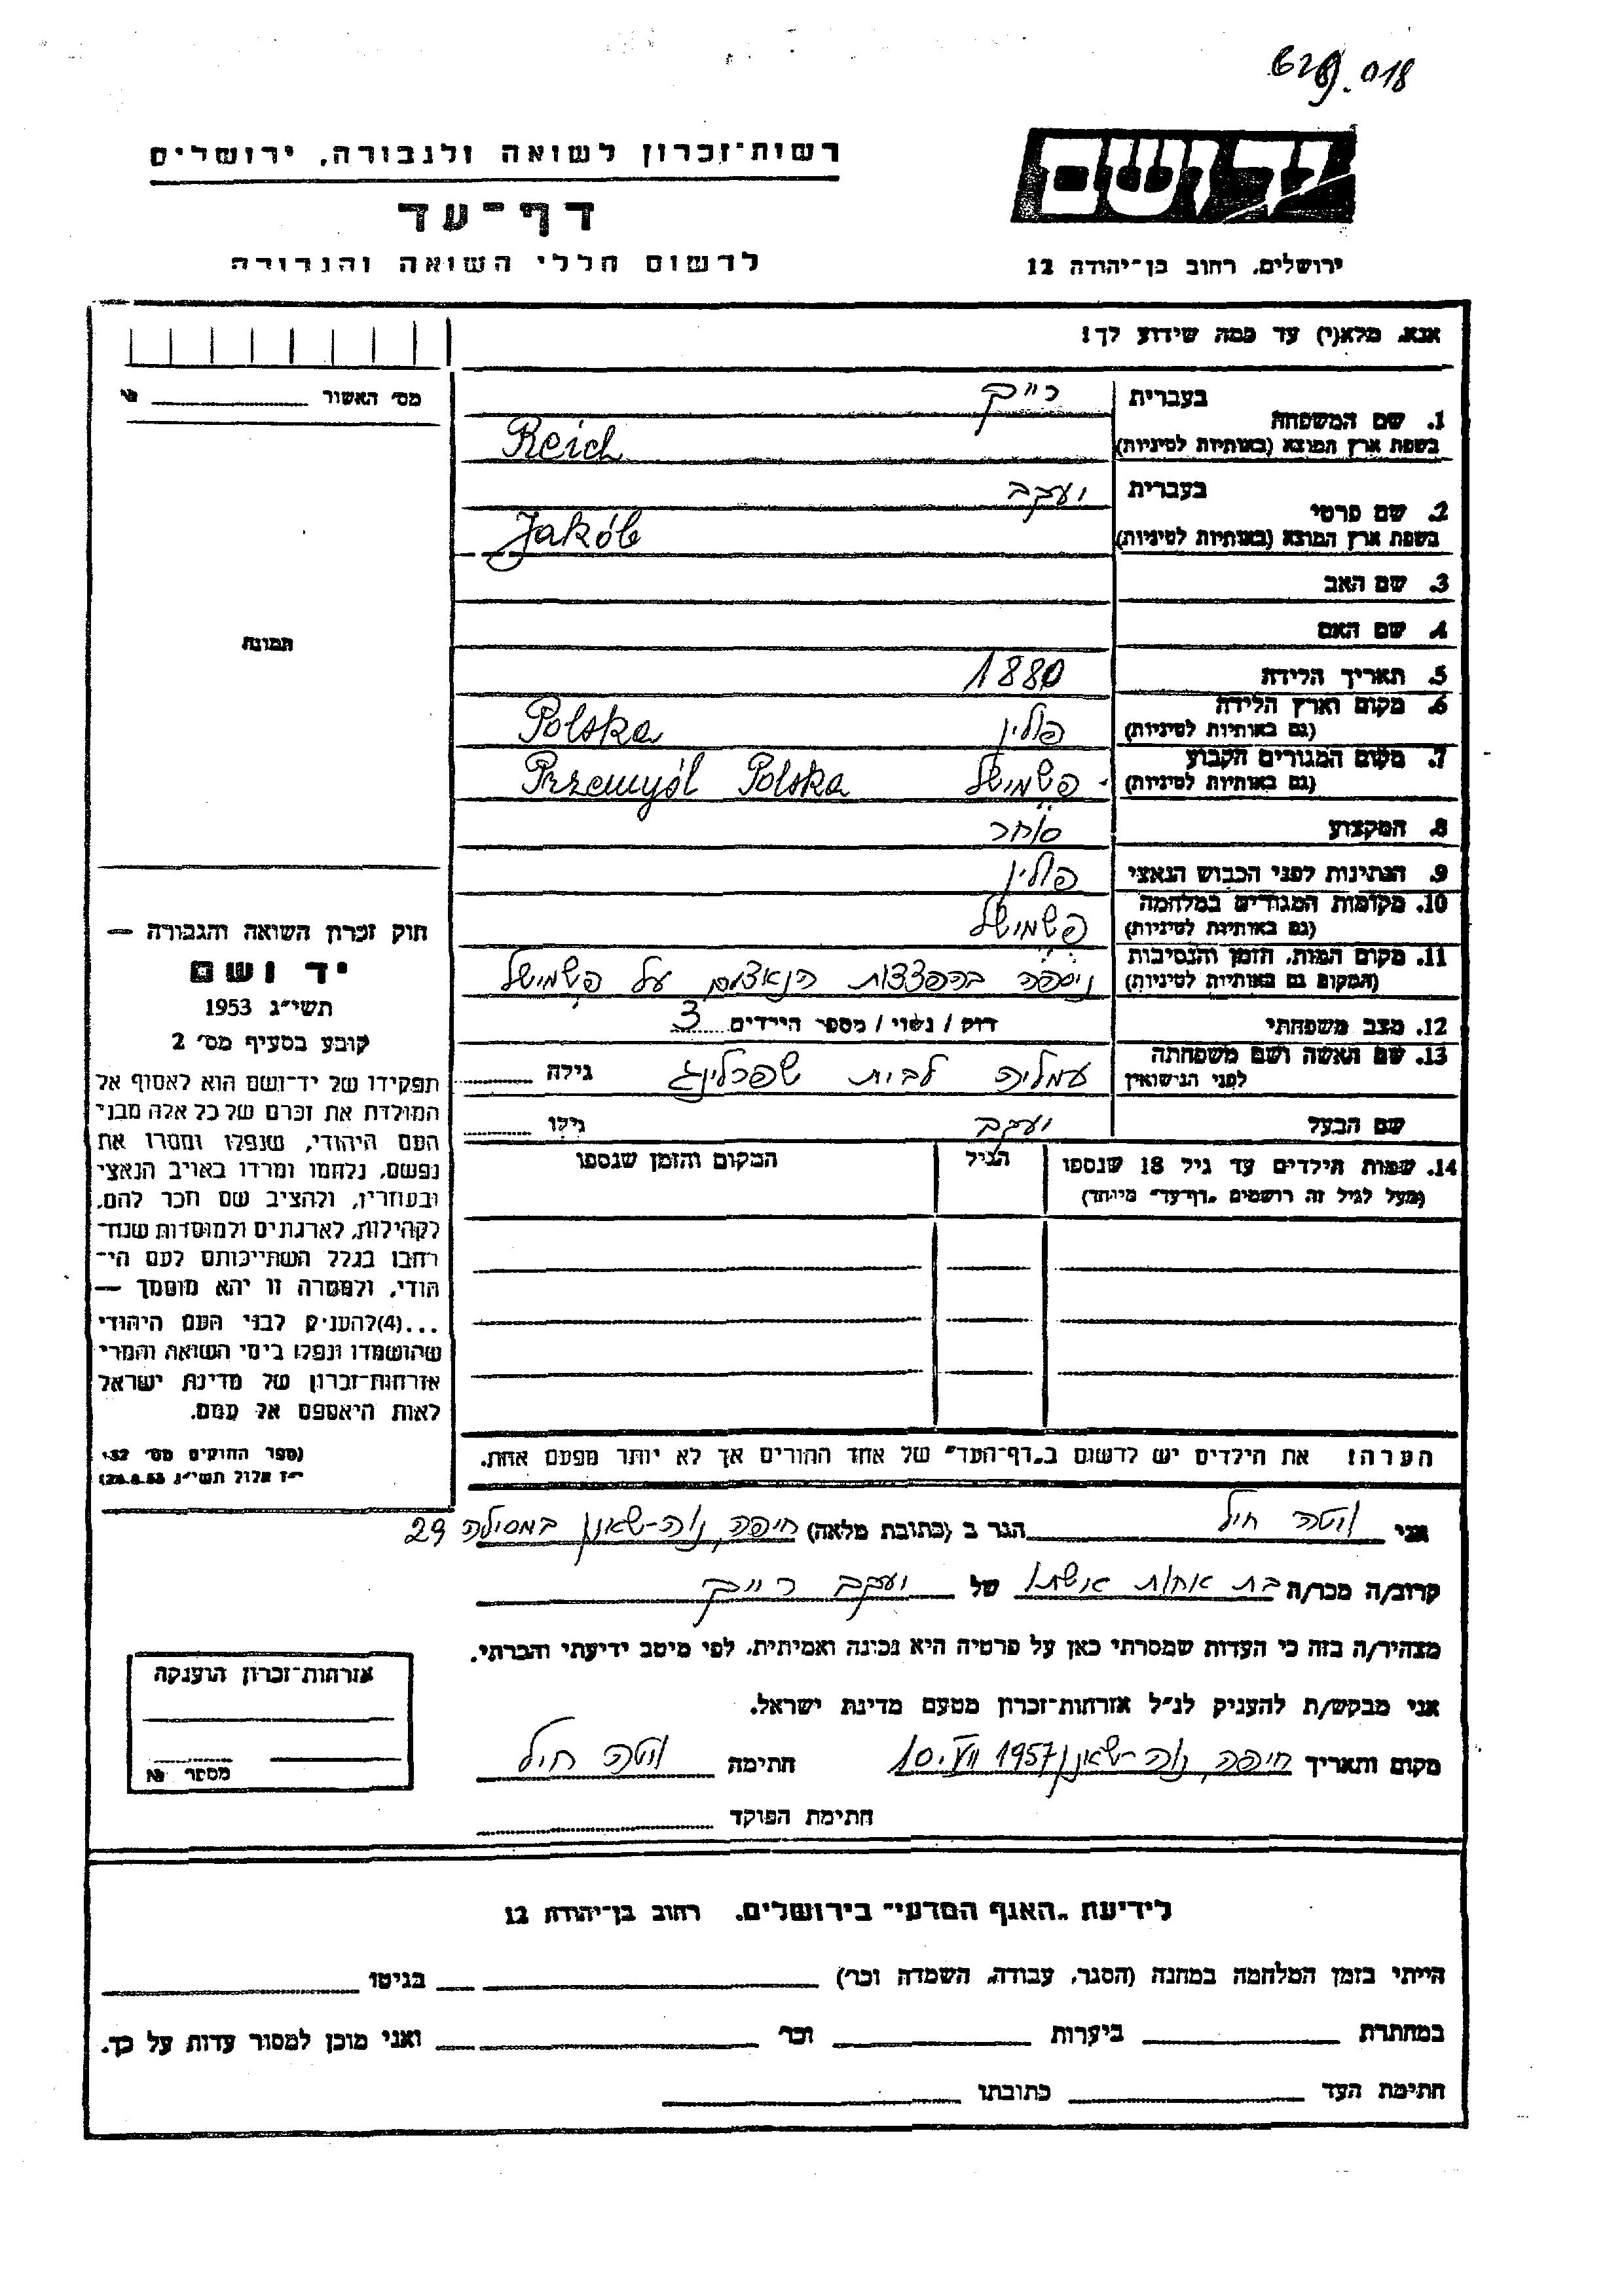 629.018
יד ושם
רשות-זכרון לשואה ולגבורה, ירושלים
דף-עד
לרשום חללי השואה והגבורה
ירושלים, רחוב בן-יהודה 12
אנא, מלא(י) עד כמה שידוע לך!
מס׳ האשור №
1. שם המשפחה בעברית רייך
בשפת ארץ המוצא (באותיות לטיניות) Reich
2. שם פרטי בעברית יעקב
בשפת ארץ המוצא (באותיות לטיניות) Jakób
3. שם האב
4. שם האם
תמונה
5. תאריך הלידה 1880
6. מקום וארץ הלידה
(גם באותיות לטיניות) פולין Polska
7. מקום המגורים הקבוע
(גם באותיות לטיניות) פשמישל Przemyśl Polska
8. המקצוע סוחר
9. הנתינות לפני הכבוש הנאצי פולין
10. מקומות המגורים במלחמה
(גם באותיות לטיניות) פשמישל
11. מקום המות, הזמן והנסיבות
(המקום גם באותיות לטיניות) ניספה בהפצצות הנאצים על פשמישל
12. מצב משפחתי רוק / נשוי / מספר הילדים 3
13. שם האשה ושם משפחתה
לפני הנישואין עמליה לבית שפרלינג גילה
שם הבעל יעקב גילו
14. שמות הילדים עד גיל 18 שנספו הגיל המקום והזמן שנספו
(מעל לגיל זה רושמים "דף-עד" מיוחד)
הערה! את הילדים יש לרשום ב"דף-העד" של אחד ההורים אך לא יותר מפעם אחת.
חוק זכרון השואה והגבורה —
יד ושם
תשי״ג 1953
קובע בסעיף מס׳ 2
תפקידו של יד-ושם הוא לאסוף אל
המולדת את זכרם של כל אלה מבני
העם היהודי, שנפלו ומסרו את
נפשם, נלחמו ומרדו באויב הנאצי
ובעוזריו, ולהציב שם וזכר להם,
לקהילות, לארגונים ולמוסדות שנח-
רבו בגלל השתייכותם לעם הי-
הודי, ולמטרה זו יהא מוסמך —
...(4)להעניק לבני העם היהודי
שהושמדו ונפלו בימי השואה והמרי
אזרחות-זכרון של מדינת ישראל
לאות היאספם אל עמם.
(ספר החוקים מס׳ 132
י״ז אלול תשי״ג 28.8.53)
אני יוטה חיל הגר ב (כתובת מלאה) חיפה, נוה-שאנן במסילה 29
קרוב/ה מכר/ה בת אחות אשתו של יעקב רייך
מצהיר/ה בזה כי העדות שמסרתי כאן על פרטיה היא נכונה ואמיתית, לפי מיטב ידיעתי והכרתי.
אני מבקש/ת להעניק לנ״ל אזרחות-זכרון מטעם מדינת ישראל.
מקום ותאריך חיפה, נוה-שאנן 10.VII 1957 חתימה יוטה חיל
חתימת הפוקד
אזרחות-זכרון הוענקה
מספר №
לידיעת "האגף המדעי" בירושלים, רחוב בן-יהודה 12
הייתי בזמן המלחמה במחנה (הסגר, עבודה, השמדה וכו׳) בגיטו
במחתרת ביערות וכו׳ ואני מוכן למסור עדות על כך.
חתימת העד כתובתו